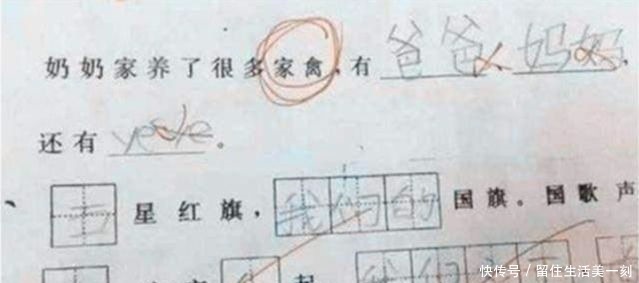 奶奶家养了很多家禽，有爸爸、妈妈，
还有yeye。
五星红旗，我们的国旗。国歌声
我们
快传号／留住生活美一刻